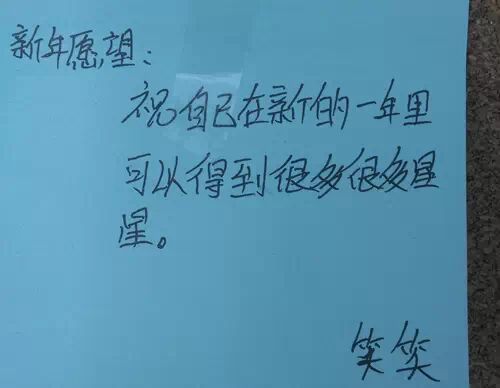 新年愿望:
祝自己在新的一年里
可以得到很多很多星
星。
笑笑